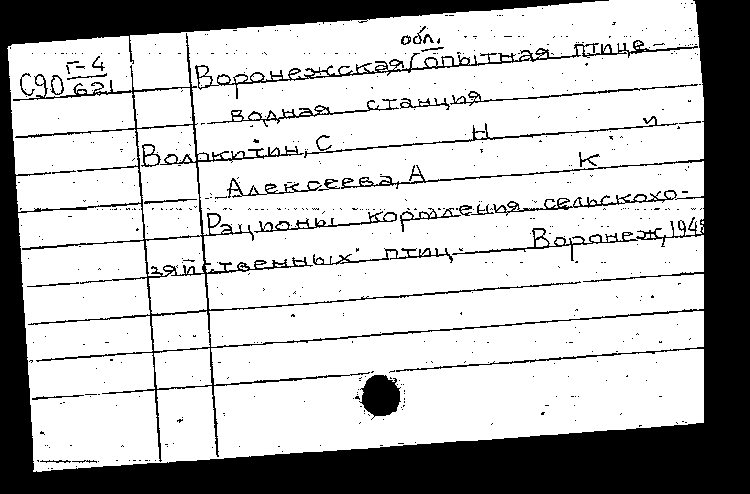 обл.
С90 Г-4/621 Воронежская опытная птице-
водная станция
Волокитин, С Н и
Алексеева, А К
Рационы кормления сельскохо-
зяйственных птиц. Воронеж, 1948